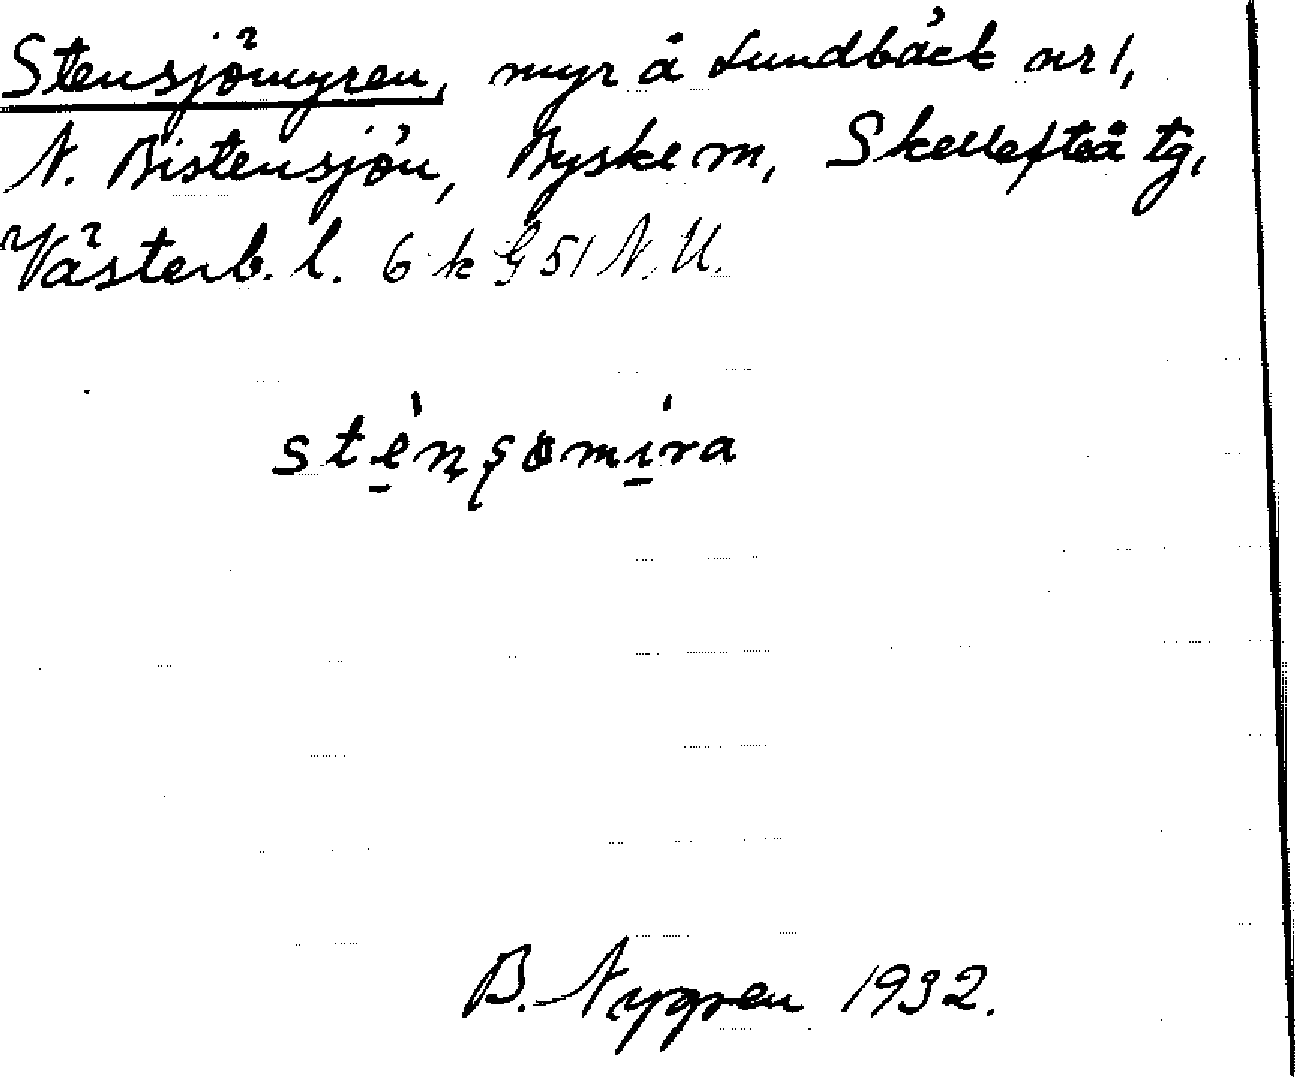 Stensjömyren, myr å Lundbäck nr 1,
N. Bistensjön, Byske m, Skellefteå tg,
Västerb. l. 6 k § 51 N. U.
B. Nygren 1932.